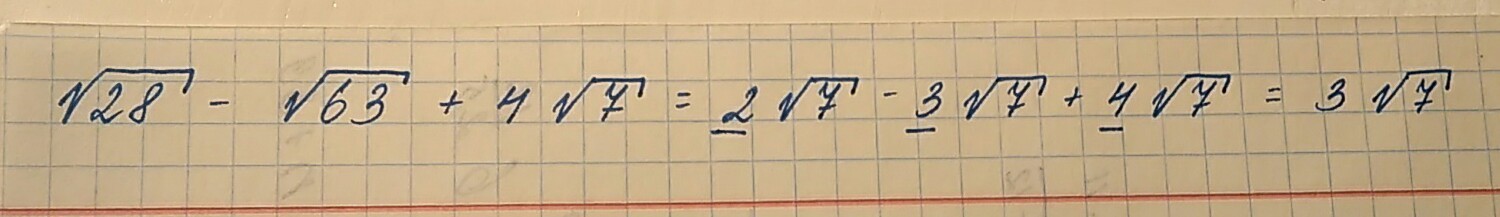 √28 - √63 + 4√7 = 2√7 - 3√7 + 4√7 = 3√7